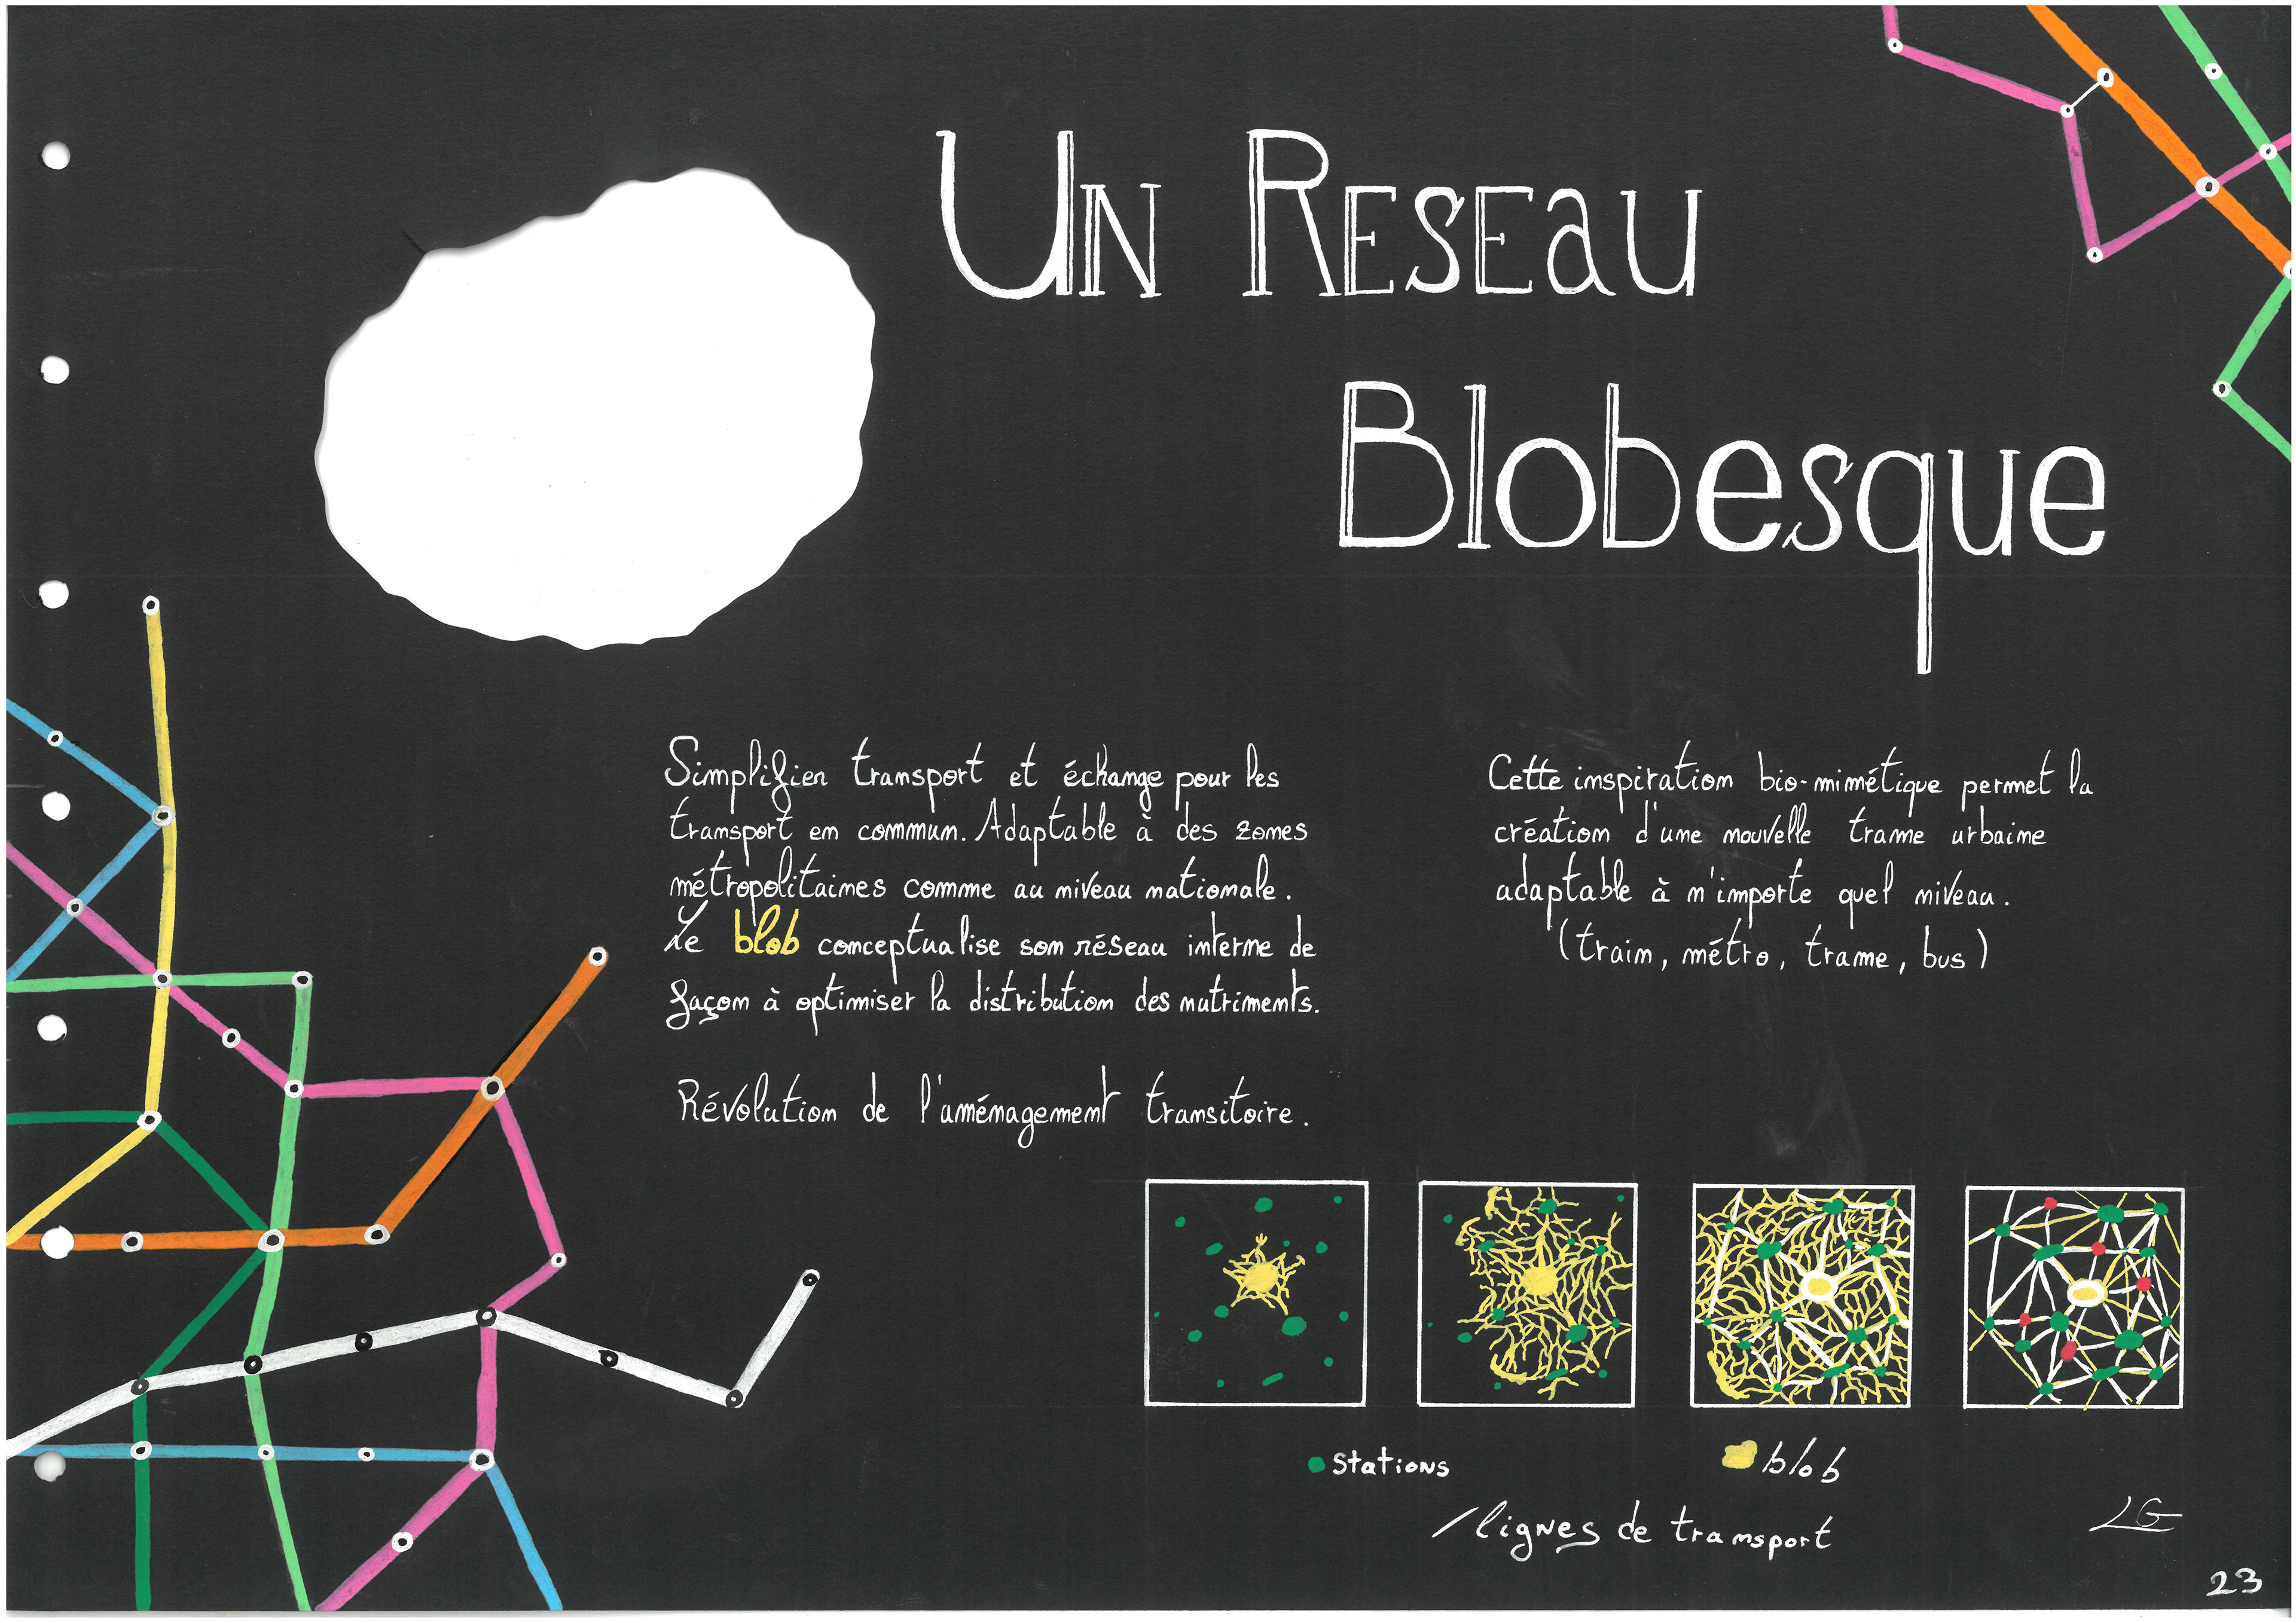 Un Reseau
Blobesque
Simplifier transport et échange pour les
transport en commun. Adaptable à des zones
métropolitaines comme au niveau nationale.
Le blob conceptualise son réseau interne de
façon à optimiser la distribution des nutriments.
Révolution de l'aménagement transitoire.
Cette inspiration bio-mimétique permet la
création d'une nouvelle trame urbaine
adaptable à n'importe quel niveau.
(train, métro, trame, bus)
stations
blob
lignes de transport
LG
23